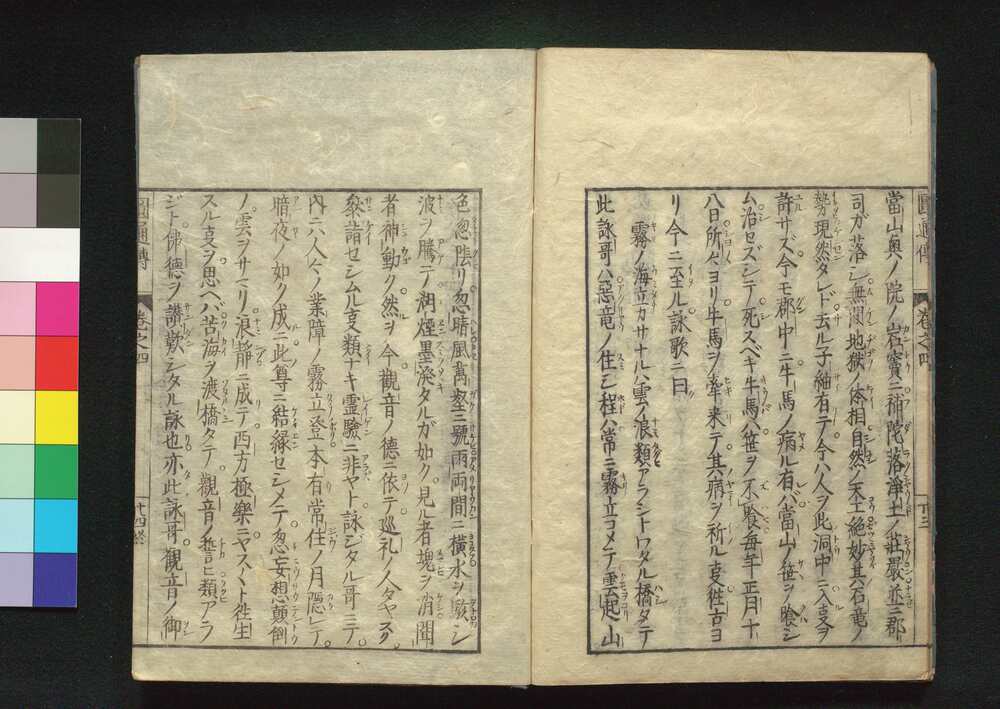 圓通傳
卷之四
十三
當山奥ノ院ノ岩竇ニ補陀落浄土ノ莊嚴並ニ郡
司ガ落シ無間地獄ノ体相自然ノ天工絶妙其石竜ノ
勢現然タレド去ル子細有テ今ハ人ヲ此洞中ニ入支ヲ
許サズ今モ郡中ニ牛馬ノ病ル有バ當山ノ笹ヲ喰シ
ム治セズシテ死スベキ牛馬ハ笹ヲ不喰毎年正月十
八日所々ヨリ牛馬ヲ牽来テ其病ヲ祈ル支徃古ヨ
リ今ニ至ル詠歌ニ曰
霧ノ海立カサナルハ雲ノ浪類アラシトワタル橋タテ
此詠哥ハ惡竜ノ住シ程ハ常ニ霧立コメテ雲起山
色忽陰リ忽晴風萬壑ニ號雨両間ニ横水ヲ駭シ
波ヲ騰テ湖煙墨溌タルガ如ク見ル者塊ヲ消聞
者神動ク然ヲ今觀音ノ德ニ依テ巡礼ノ人タヤスク
叅詣セシムル支類ナキ霊驗ニ非ヤト詠ジタル哥ニテ
内ニハ人々ノ業障ノ霧立登本有常住ノ月隠レテ
暗夜ノ如ク成ニ此尊ニ結縁セシメテ忽妄想顛倒
ノ雲ヲサマリ浪静ニ成テ西方極樂ニヤスヽト徃生
スル支ヲ思ヘバ苦海ヲ渡橋タテヽ觀音ノ誓ヒ類アラ
ジト佛德ヲ讃歎シタル詠也亦此詠哥觀音ノ御
圓通傳
卷之四
十四終